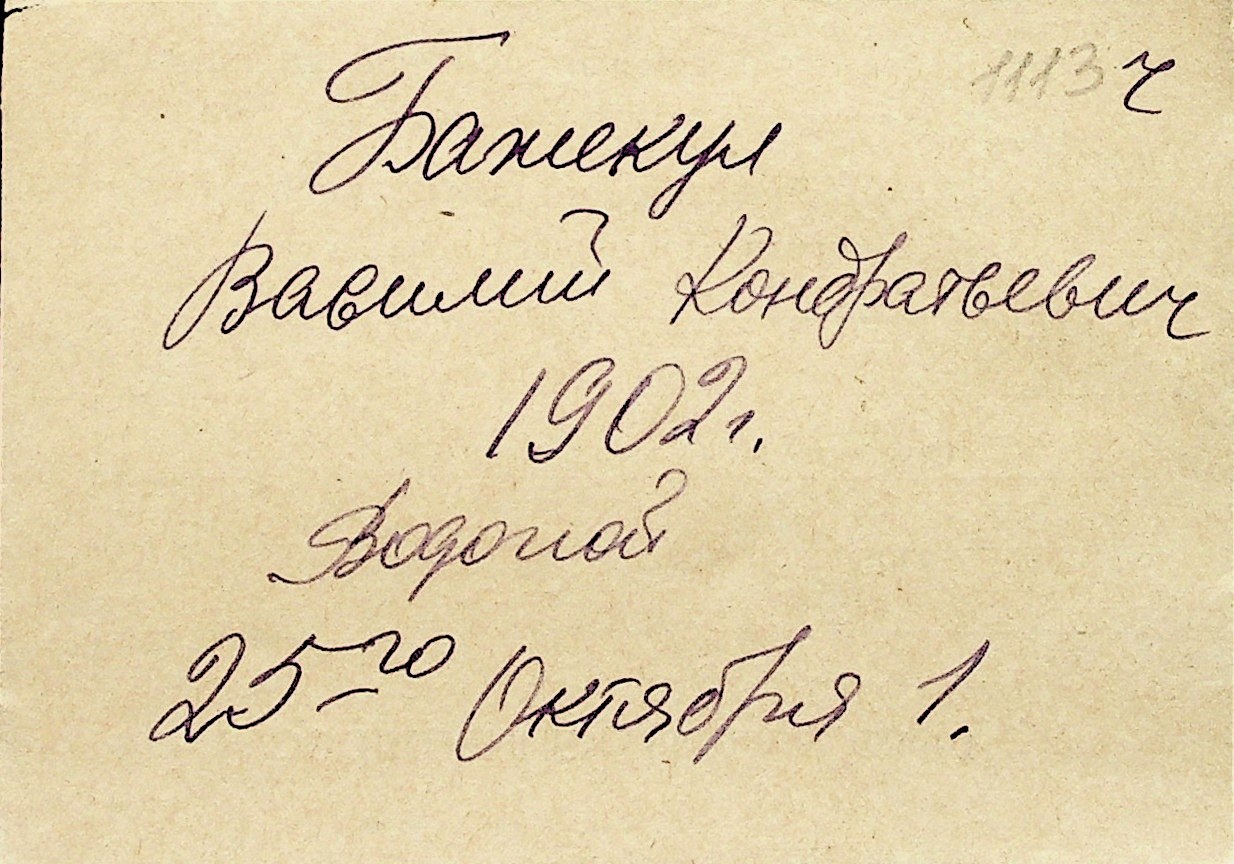 1113 ч
Бажекул
Василий Кондратьевич
1902г.
Водопой
25-го Октября 1.